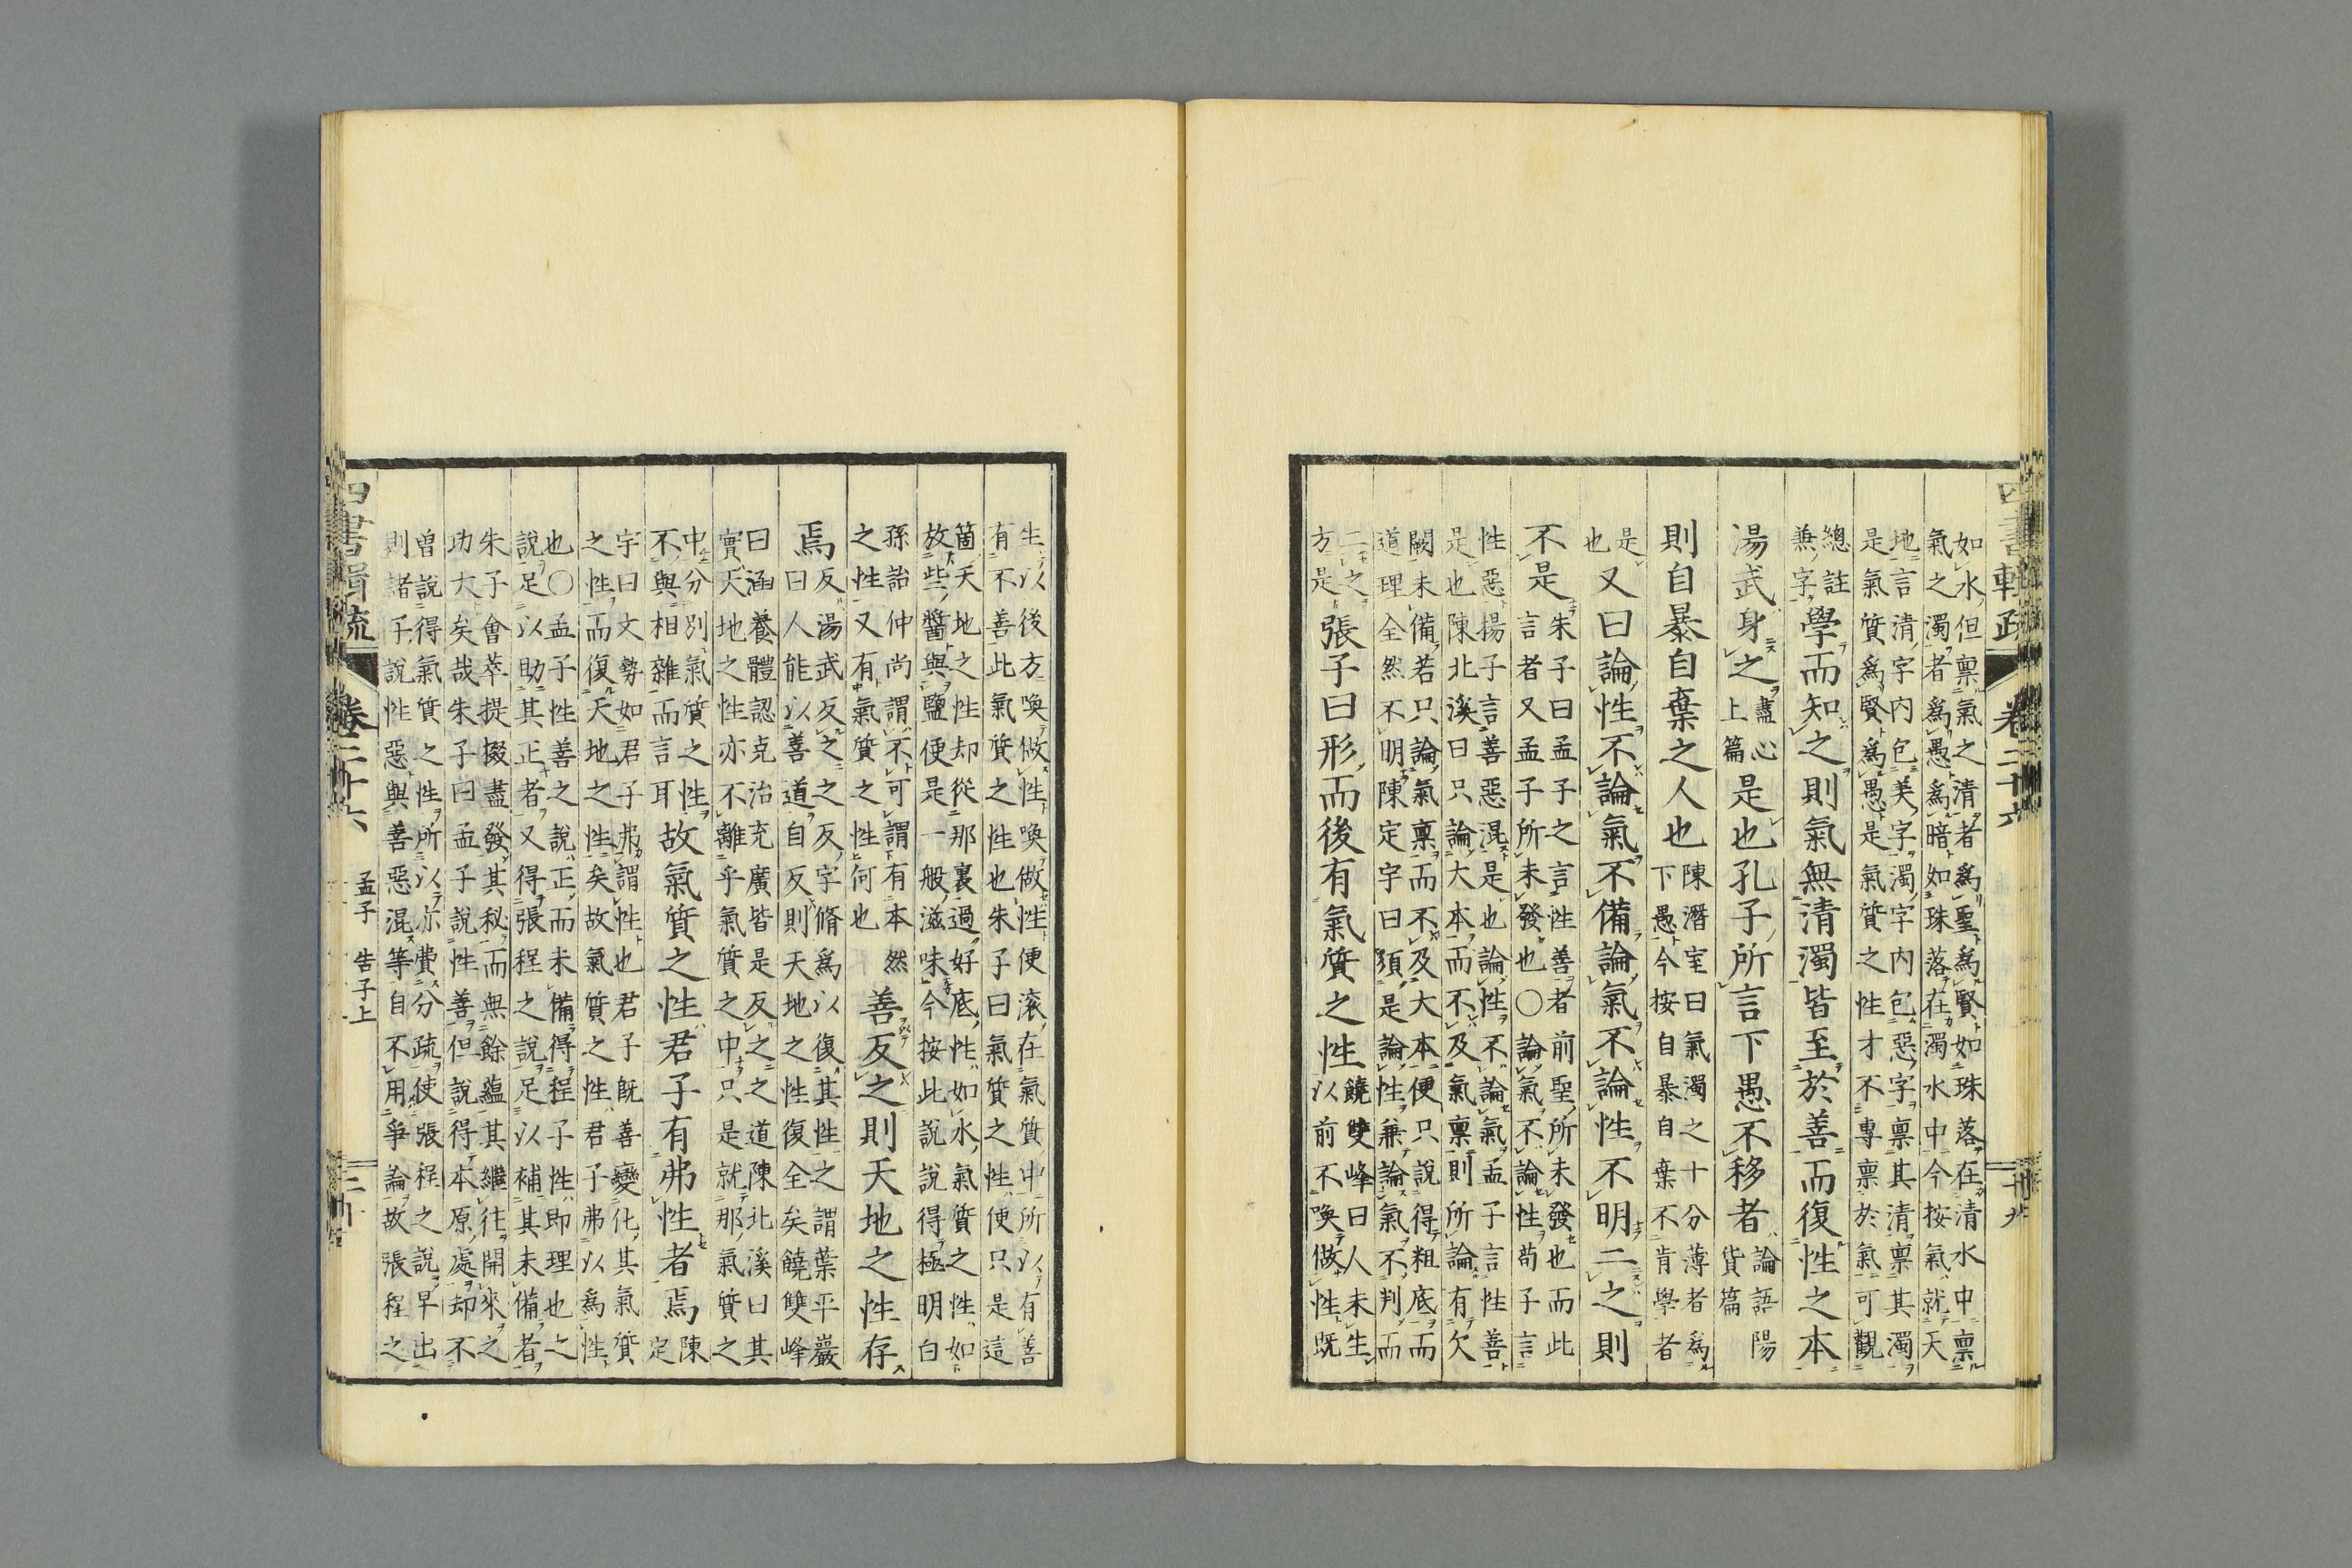 四書輯疏 卷二十六 廿九
如水但禀氣之清者爲聖爲賢如珠落在清水中禀
氣之濁者爲愚爲暗如珠落在濁水中今按氣就天
地言清字内包美字濁字内包惡字禀其清禀其濁
是氣質爲賢爲愚是氣質之性才不專禀於氣可觀
總註
兼字
學而知之則氣無清濁皆至於善而復性之本
湯武身之
盡心
上篇
是也孔子所言下愚不移者
論語陽
貨篇
則自暴自棄之人也
陳潛室曰氣濁之十分薄者爲
下愚今按自暴自棄不肯學者
是
也
又曰論性不論氣不備論氣不論性不明二之則
不是
朱子曰孟子之言性善者前聖所未發也而此
言者又孟子所未發也〇論氣不論性荀子言
性惡揚子言善惡混是也論性不論氣孟子言性善
是也陳北溪曰只論大本而不及氣禀則所論有欠
闕未備若只論氣禀而不及大本便只說得粗底而
道理全然不明陳定宇曰須是論性兼論氣不判而
二之
方是
張子曰形而後有氣質之性
饒雙峰曰人未生
以前不喚做性既
生以後方喚做性喚做性便滾在氣質中所以有善
有不善此氣質之性也朱子曰氣質之性便只是這
箇天地之性却從那裏過好底性如水氣質之性如
放些醬與鹽便是一般滋味今按此說說得極明白
孫詒仲尚謂不可謂有本然
之性又有氣質之性何也
善反之則天地之性存
焉
反湯武反之之反字脩爲以復其性之謂葉平巖
曰人能以善道自反則天地之性復全矣饒雙峰
曰涵養體認克治充廣皆是反之之道陳北溪曰其
實天地之性亦不離乎氣質之中只是就那氣質之
中分別氣質之性
不與相雜而言耳
故氣質之性君子有弗性者焉
陳
定
宇曰文勢如君子弗謂性也君子既善變化其氣質
之性而復天地之性矣故氣質之性君子弗以爲性
也〇孟子性善之說正而未備得程子性即理也之
說足以助其正者又得張程之說足以補其未備者
朱子會萃提掇盡發其秘而無餘蘊其繼往開來之
功大矣哉朱子曰孟子說性善但說得本原處却不
曾說得氣質之性所以亦費分疏使張程之說早出
則諸子說性惡與善惡混等自不用爭論故張程之
四書輯疏 卷二十六 孟子 告子上